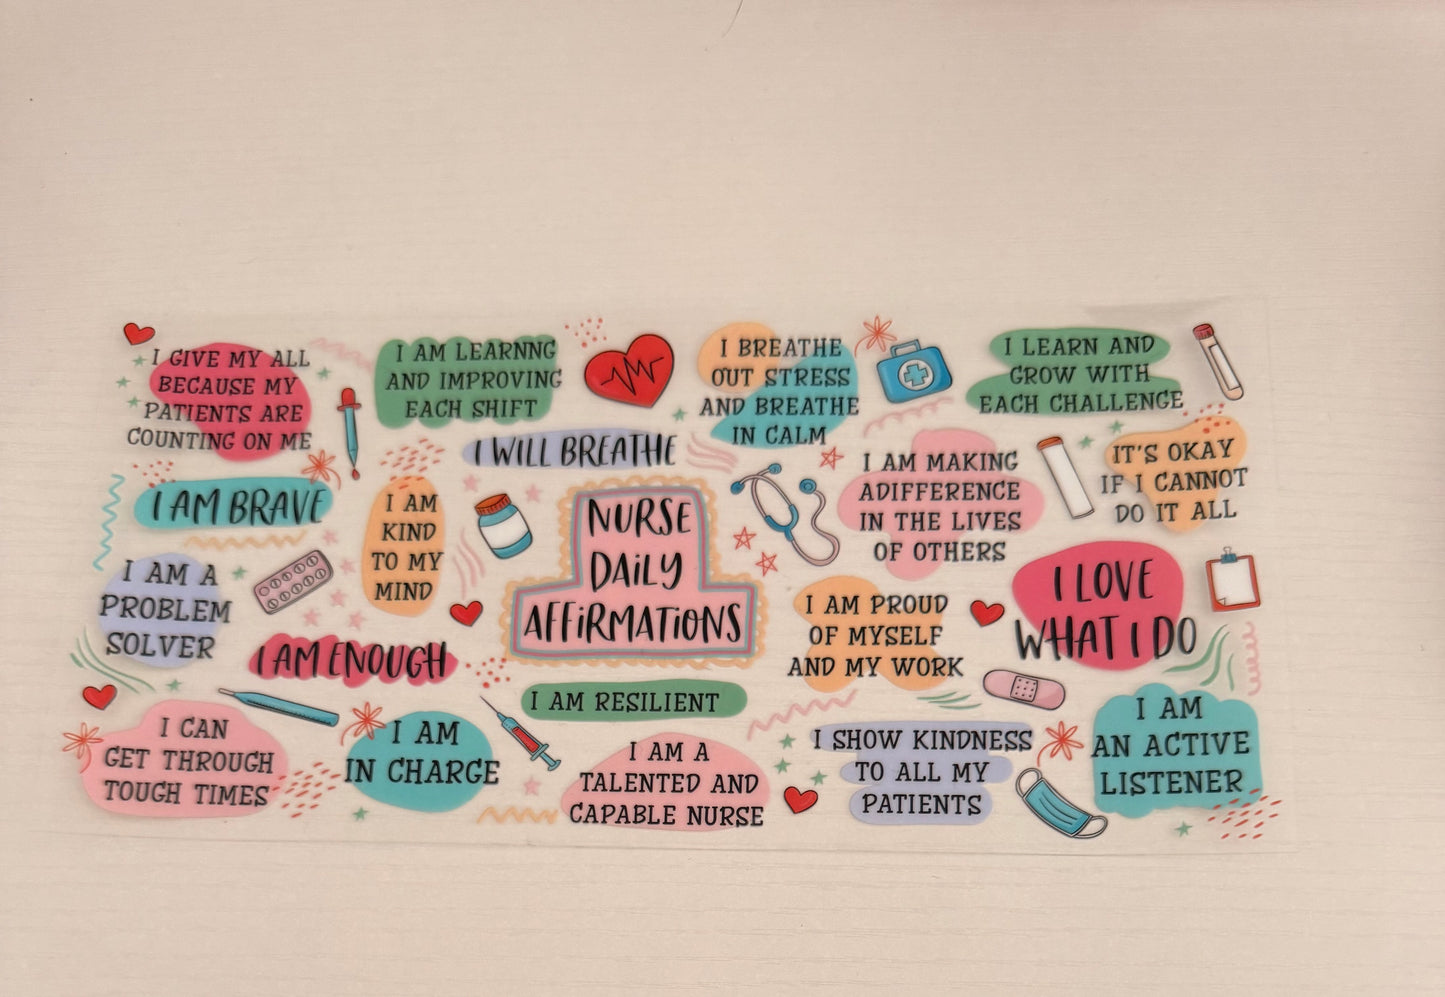 I GIVE MY ALL
BECAUSE MY
PATIENTS ARE
COUNTING ON ME
I AM LEARNNG
AND IMPROVING
EACH SHIFT
I BREATHE
OUT STRESS
AND BREATHE
IN CALM
I LEARN AND
GROW WITH
EACH CHALLENGE
I WILL BREATHE
I AM BRAVE
I AM
KIND
TO MY
MIND
NURSE
DAILY
AFFIRMATIONS
I AM MAKING
ADIFFERENCE
IN THE LIVES
OF OTHERS
IT'S OKAY
IF I CANNOT
DO IT ALL
I AM A
PROBLEM
SOLVER
I AM ENOUGH
I AM PROUD
OF MYSELF
AND MY WORK
I LOVE
WHAT I DO
I CAN
GET THROUGH
TOUGH TIMES
I AM
IN CHARGE
I AM RESILIENT
I AM A
TALENTED AND
CAPABLE NURSE
I SHOW KINDNESS
TO ALL MY
PATIENTS
I AM
AN ACTIVE
LISTENER